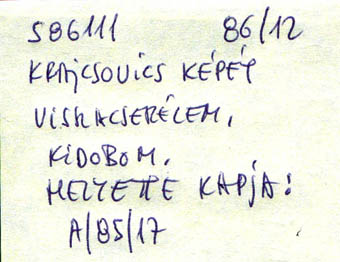 586111 86/12
KRAJCSOVICS KÉPÉT
VISSZACSERÉLEM,
KIDOBOM.
HELYETTE KAPJA:
A/85/17